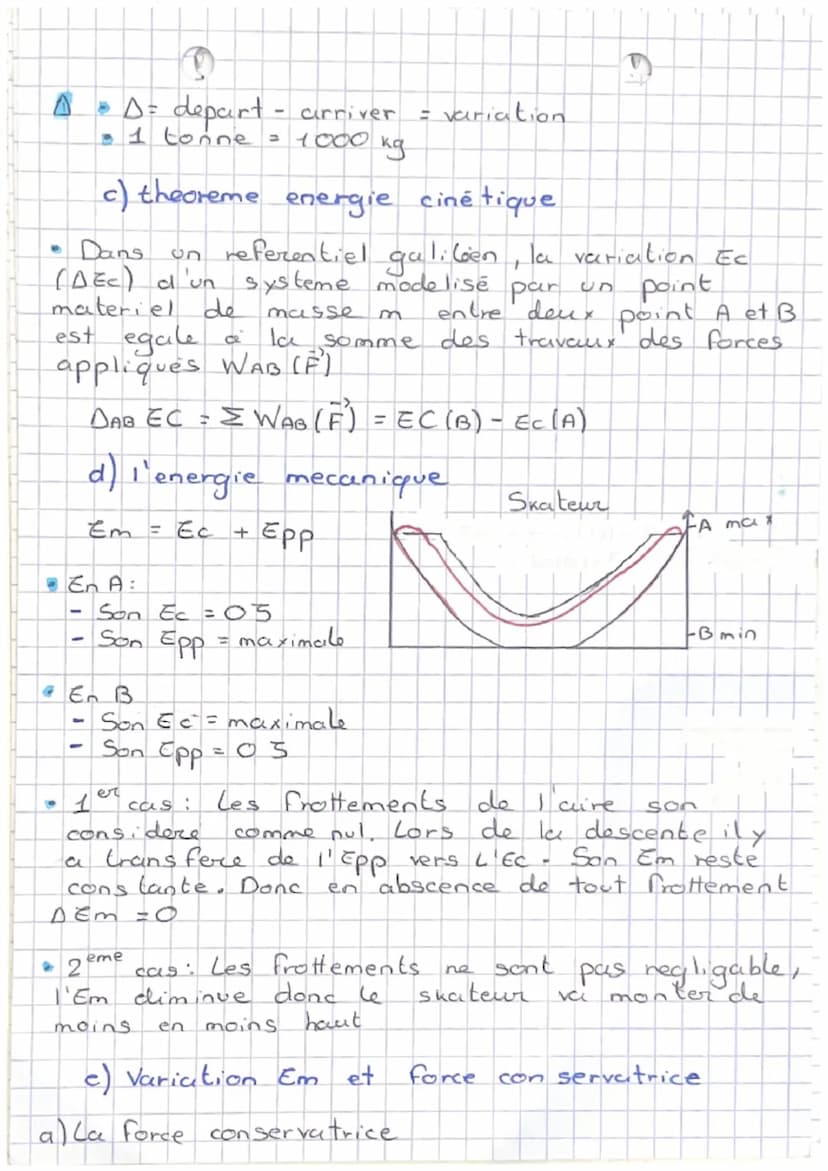 Δ • Δ= depart - arriver = variation
• 1 tonne = 1000 kg
c) theoreme energie cinétique
• Dans un referentiel galiléen, la variation Ec
(ΔEc) d'un systeme modelisé par un point
materiel de masse m entre deux point A et B
est egale à la somme des travaux des forces
appliqués WAB (F⃗)
ΔAB EC = Σ WAB (F⃗) = EC (B) - Ec (A)
d) l'energie mecanique
Skateur
Em = Ec + Epp
A max
• En A:
- Son Ec = 0 J
- Son Epp = maximale
B min
• En B
- Son Ec = maximale
- Son Epp = 0 J
• 1er cas: Les frottements de l'aire son
consideré comme nul. Lors de la descente il y
a transfere de l'Epp vers L'Ec - Son Em reste
constante. Donc en abscence de tout frottement
ΔEm = 0
• 2eme cas: Les frottements ne sont pas negligable,
l'Em diminue donc le skateur va monter de
moins en moins haut
e) Variation Em et force conservatrice
a) La force conservatrice